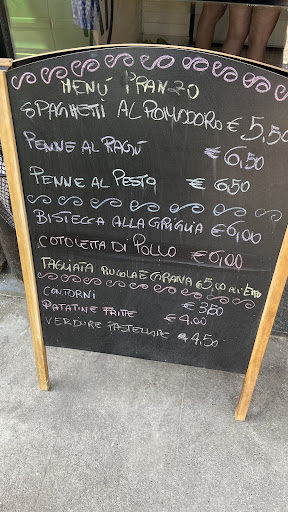 MENÚ PRANZO
SPAGHETTI AL POMODORO € 5,50
PENNE AL RAGÚ € 6,50
PENNE AL PESTO € 6,50
BISTECCA ALLA GRIGLIA € 6,00
COTOLETTA DI POLLO € 6,00
TAGLIATA RUCOLA E GRANA € 5,00 ALL'ETTO
CONTORNI
PATATINE FRITTE € 3,50
VERDURE PASTELLATE € 4,00
€ 4,50